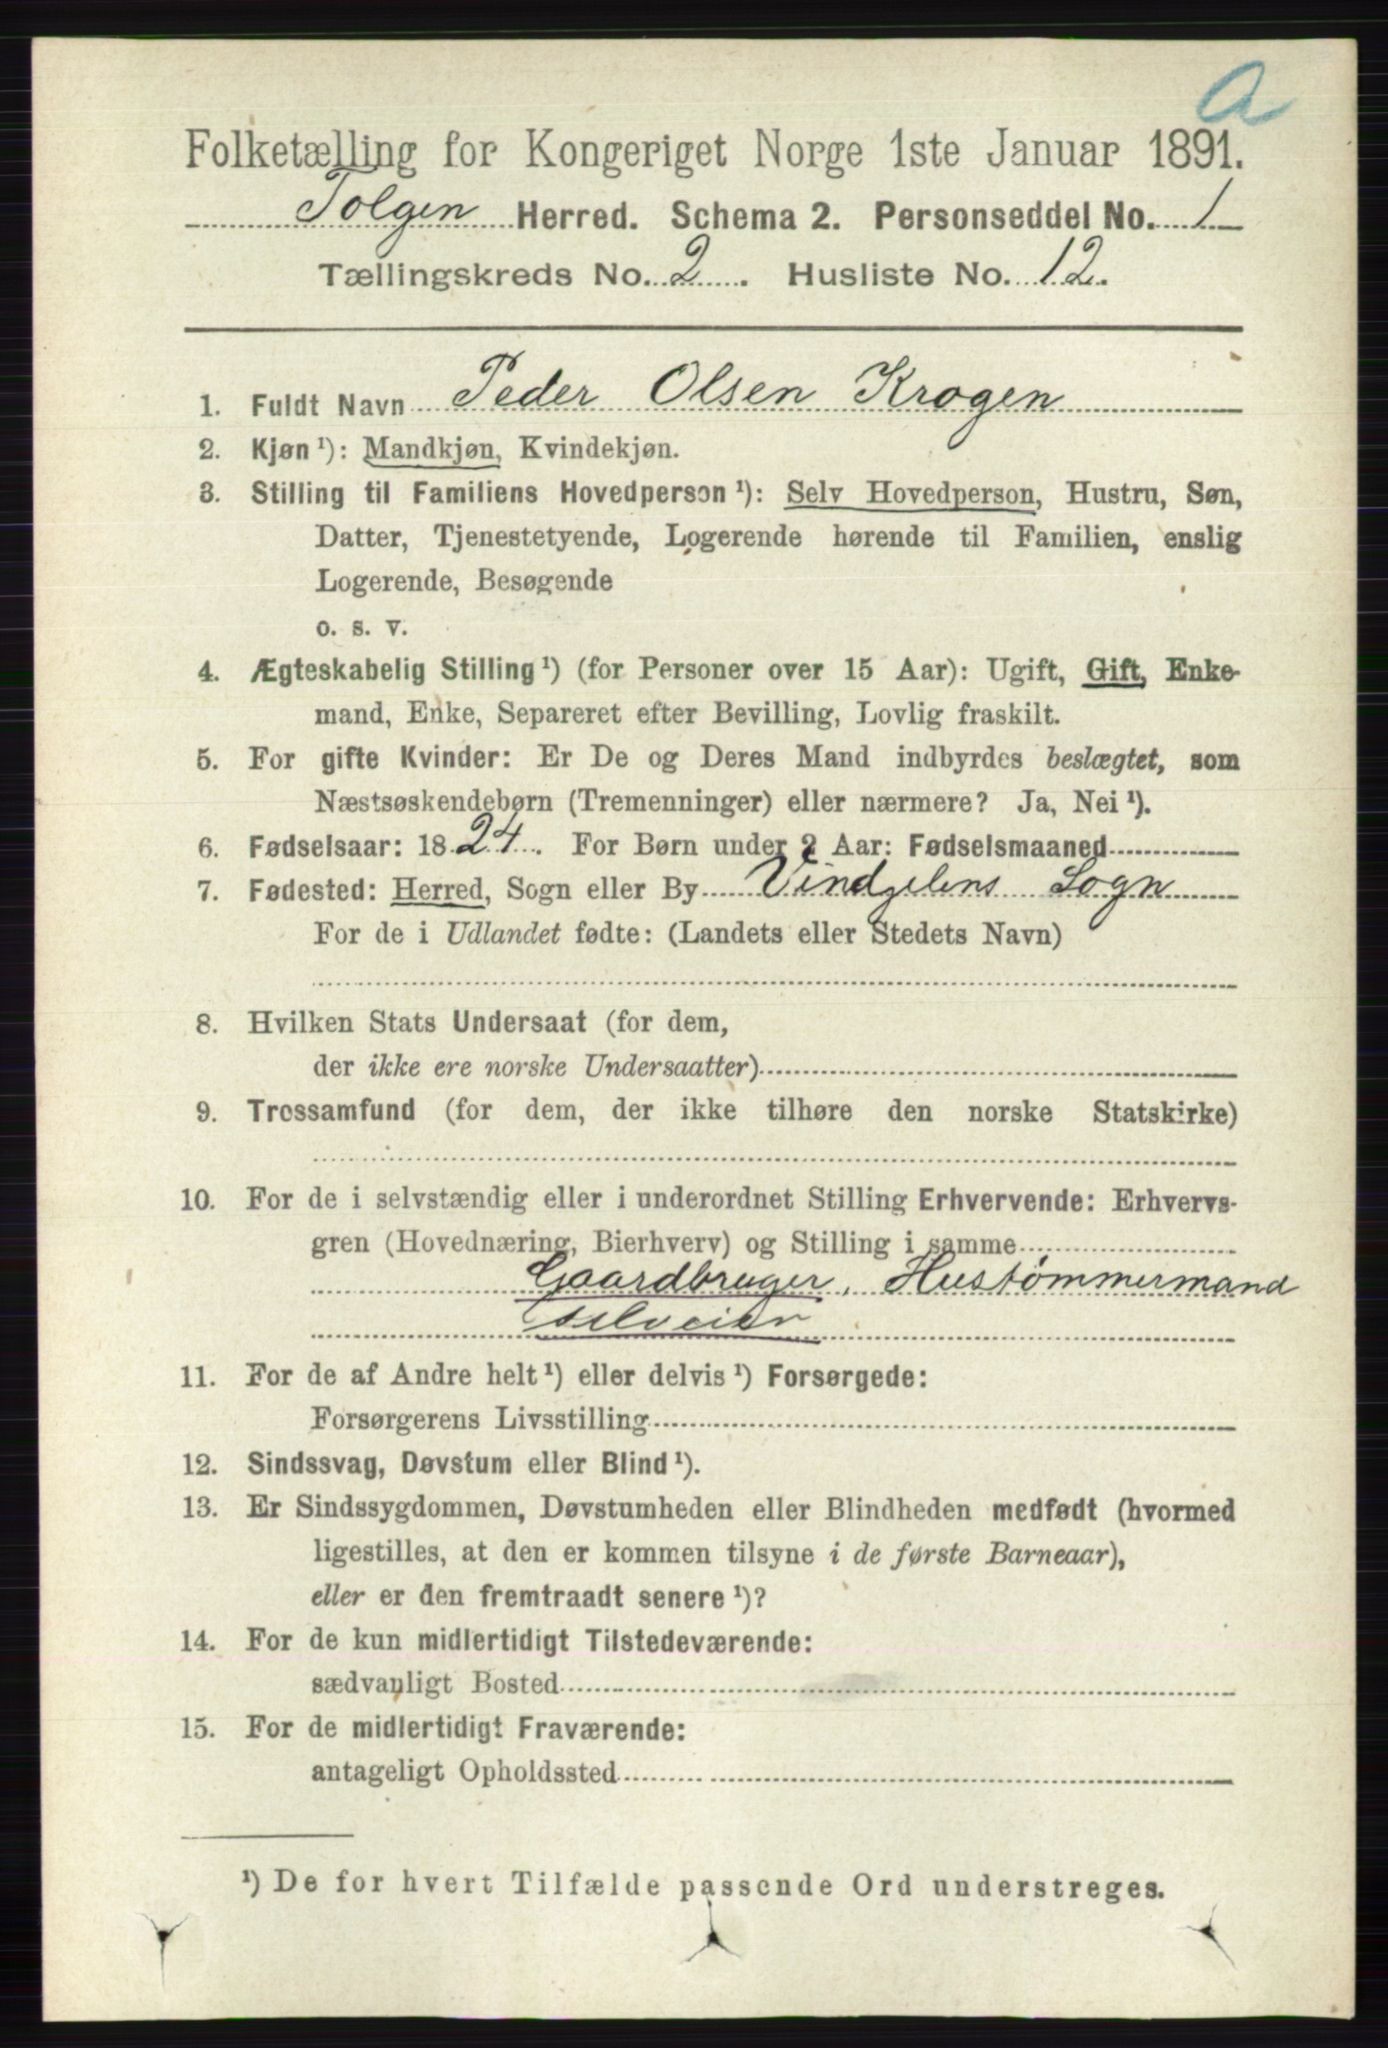 a
Folketælling for Kongeriget Norge 1ste Januar 1891.
Tolgen Herred. Schema 2. Personseddel No. 1
Tællingskreds No. 2. Husliste No. 12.
1. Fuldt Navn Peder Olsen Krogen
2. Kjøn ¹): Mandkjøn, Kvindekjøn.
3. Stilling til Familiens Hovedperson ¹): Selv Hovedperson, Hustru, Søn,
Datter, Tjenestetyende, Logerende hørende til Familien, enslig
Logerende, Besøgende
o. s. v.
4. Ægteskabelig Stilling ¹) (for Personer over 15 Aar): Ugift, Gift, Enke-
mand, Enke, Separeret efter Bevilling, Lovlig fraskilt.
5. For gifte Kvinder: Er De og Deres Mand indbyrdes beslægtet, som
Næstsøskendebørn (Tremenninger) eller nærmere? Ja, Nei ¹).
6. Fødselsaar: 1824. For Børn under 2 Aar: Fødselsmaaned
7. Fødested: Herred, Sogn eller By Vindjelens Sogn
For de i Udlandet fødte: (Landets eller Stedets Navn)
8. Hvilken Stats Undersaat (for dem,
der ikke ere norske Undersaatter)
9. Trossamfund (for dem, der ikke tilhøre den norske Statskirke)
10. For de i selvstændig eller i underordnet Stilling Erhvervende: Erhvervs-
gren (Hovednæring, Bierhverv) og Stilling i samme
Gaardbruger, Hustømmermand
Selveier
11. For de af Andre helt ¹) eller delvis ¹) Forsørgede:
Forsørgerens Livsstilling
12. Sindssvag, Døvstum eller Blind ¹).
13. Er Sindssygdommen, Døvstumheden eller Blindheden medfødt (hvormed
ligestilles, at den er kommen tilsyne i de første Barneaar),
eller er den fremtraadt senere ¹)?
14. For de kun midlertidigt Tilstedeværende:
sædvanligt Bosted
15. For de midlertidigt Fraværende:
antageligt Opholdssted
¹) De for hvert Tilfælde passende Ord understreges.